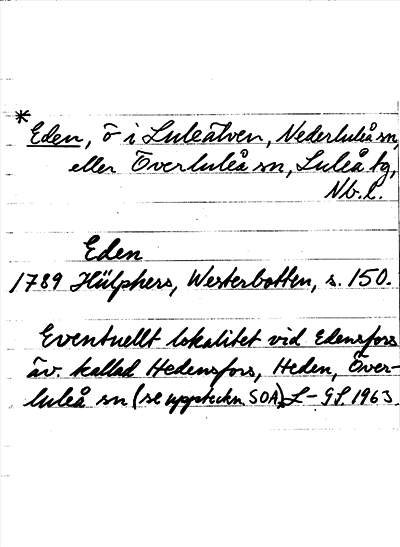 * Eden, ö i Luleälven, Nederluleå sn,
eller Överluleå sn, Luleå tg,
Nb. l.
Eden
1789 Hülphers, Westerbotten, s. 150.
Eventuellt lokalitet vid Edensfors
äv. kallad Hedensfors, Heden, Över-
luleå sn (se uppteckn. SOA). L-GL 1963.